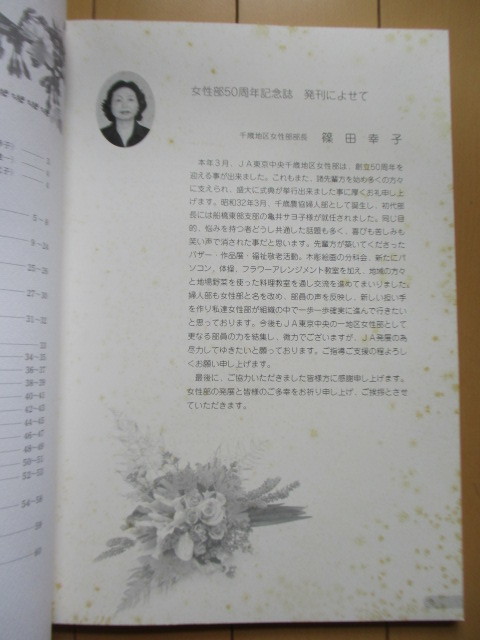 女性部50周年記念誌　発刊によせて
千歳地区女性部部長　篠田幸子
本年3月、JA東京中央千歳地区女性部は、創立50周年を
迎える事が出来ました。これもまた、諸先輩方を始め多くの方々
に支えられ、盛大に式典が挙行出来ました事に厚くお礼申し上
げます。昭和32年3月、千歳農協婦人部として誕生し、初代部
長には船橋東部支部の亀井サヨ子様が就任されました。同じ目
的、悩みを持つ者どうし共通した話題も多く、喜びも苦しみも
笑い声で消された事だと思います。先輩方が築いてくださった
バザー・作品展・福祉敬老活動。木彫絵画の分科会、新たにパ
ソコン、体操、フラワーアレンジメント教室を加え、地域の方々
と地場野菜を使った料理教室を通し交流を進めてまいりました。
婦人部も女性部と名を改め、部員の声を反映し、新しい担い手
を作り私達女性部が組織の中で一歩一歩確実に進んで行きたい
と思っております。今後もJA東京中央の一地区女性部として
更なる部員の力を結集し、微力でございますが、JA発展の為
尽力してゆきたいと願っております。ご指導ご支援の程よろし
くお願い申し上げます。
最後に、ご協力いただきました皆様方に感謝申し上げます。
女性部の発展と皆様のご多幸をお祈り申し上げ、ご挨拶とさせ
ていただきます。
5~8
9~24
25~26
27~30
31~32
33
34~35
36
37
38
39
40
41
42~43
44~45
46~47
48~49
50~51
52~53
54~58
59
60